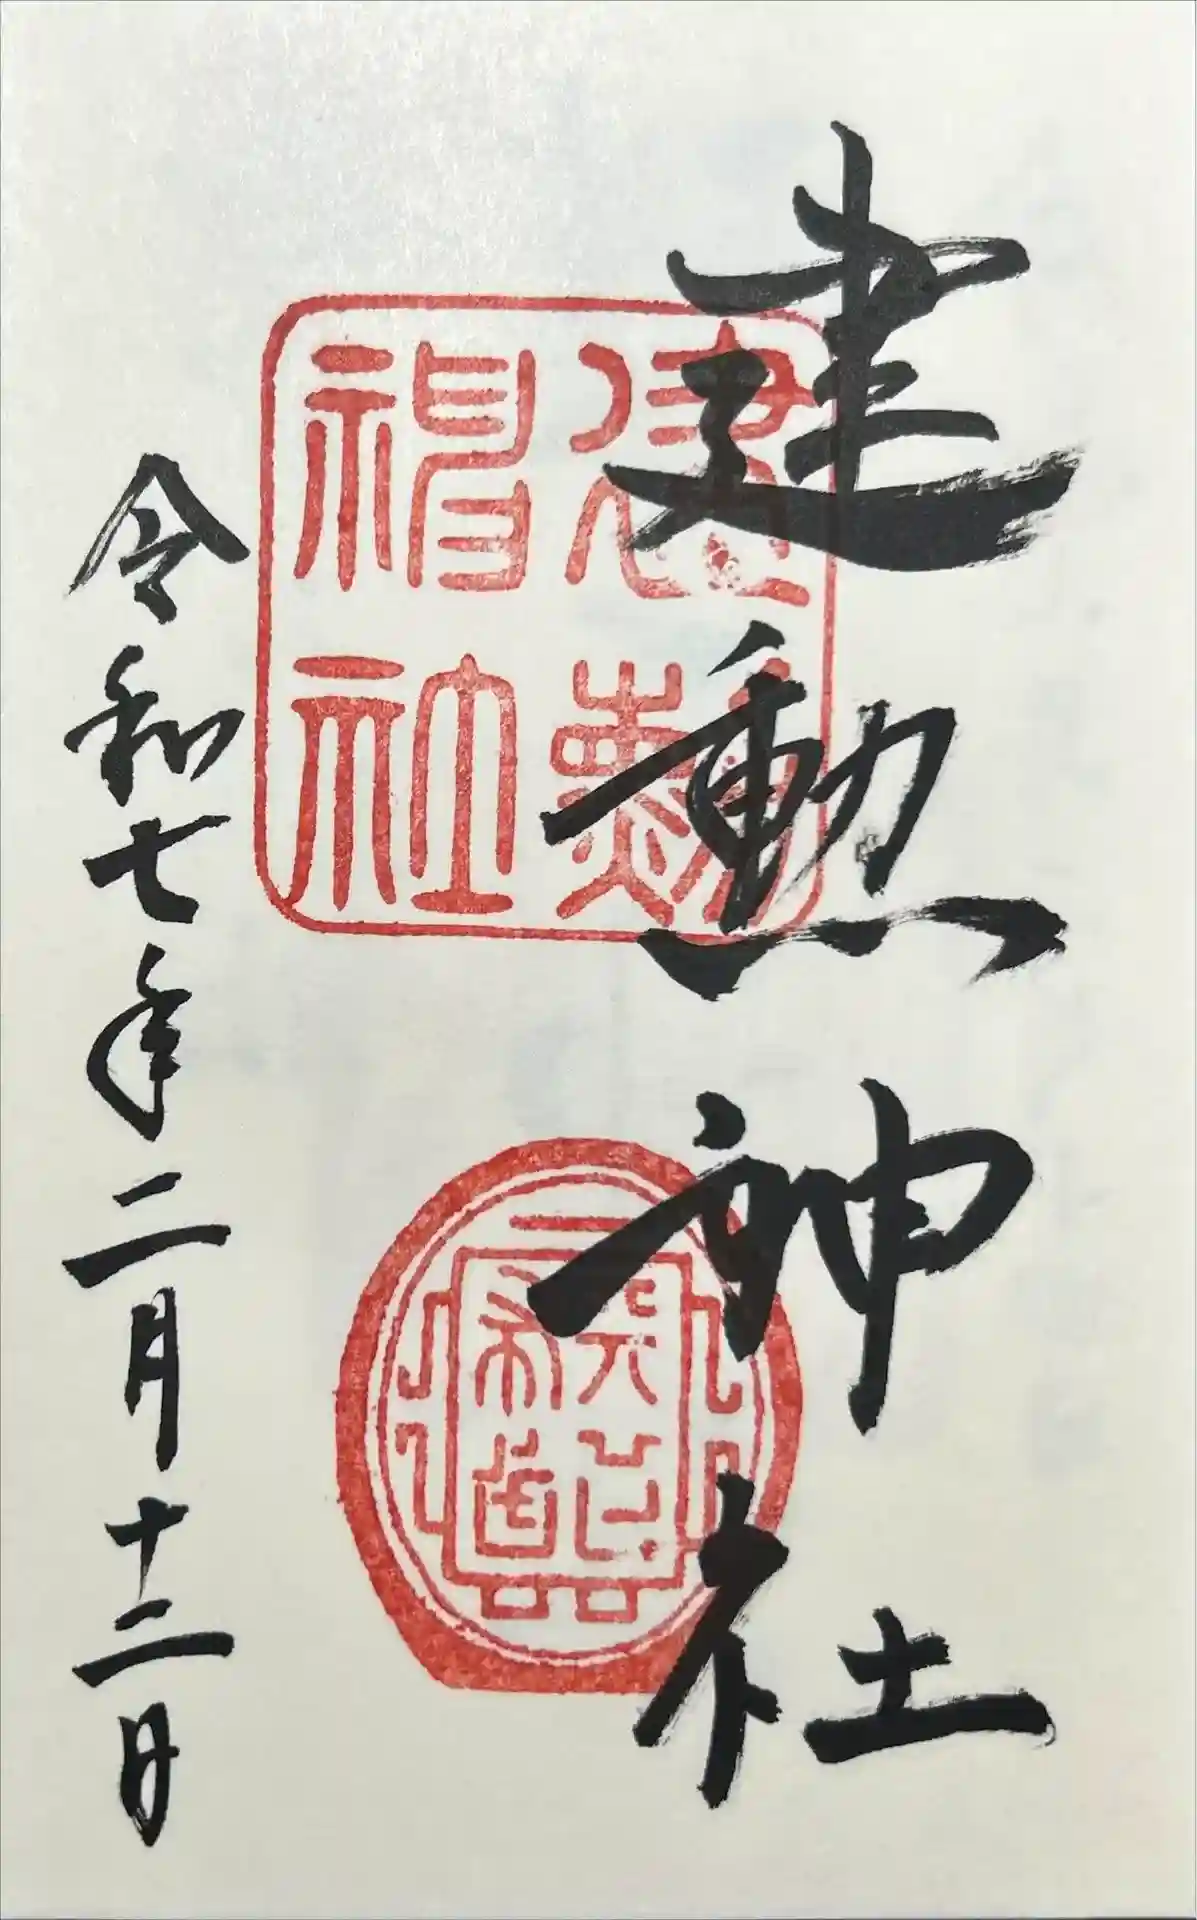 建勲神社
建勲
神社
令和七年二月十二日